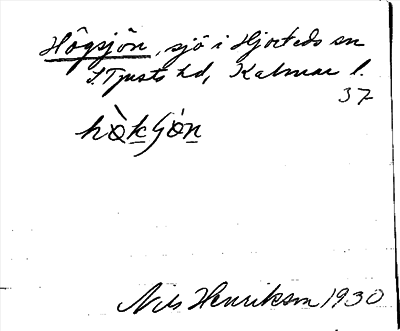 Högsjön, sjö i Hjorteds sn
S. Tjusts hd, Kalmar l.
37
hò̀kʃön
Nils Henrikson 1930